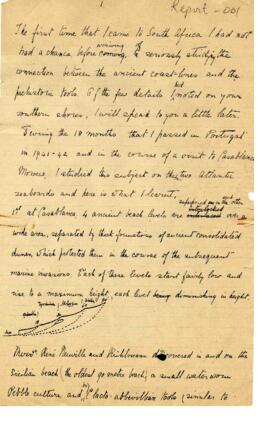 Report - 001
The first time that I came to South Africa I had not
had a chance, before coming, of seriously studying the
connection between the ancient coast-lines and the
prehistoric tools. Of the few details I noted on your
southern shores, I will speak to you a little later.
During the 18 months that I passed in Portugal
in 1941-42 and in the course of a visit to Casablanca
Morocco, I studied this subject on the two Atlantic
seaboards and here is what I learnt.
1st at Casablanca, 4 ancient beach levels are superposed on each other over a
wide area, separated by thick formations of ancient consolidated
dunes, which protected them in the course of the subsequent
marine invasions. Each of these levels start fairly low and
rise to a maximum height, each level being diminishing in height.
Mrs. Neuville and Rühlmann discovered in and on the
Sicilian beach (the oldest 90 metre beach) a small water worn
Pebble culture and clacto-abbevillian tools (similar to